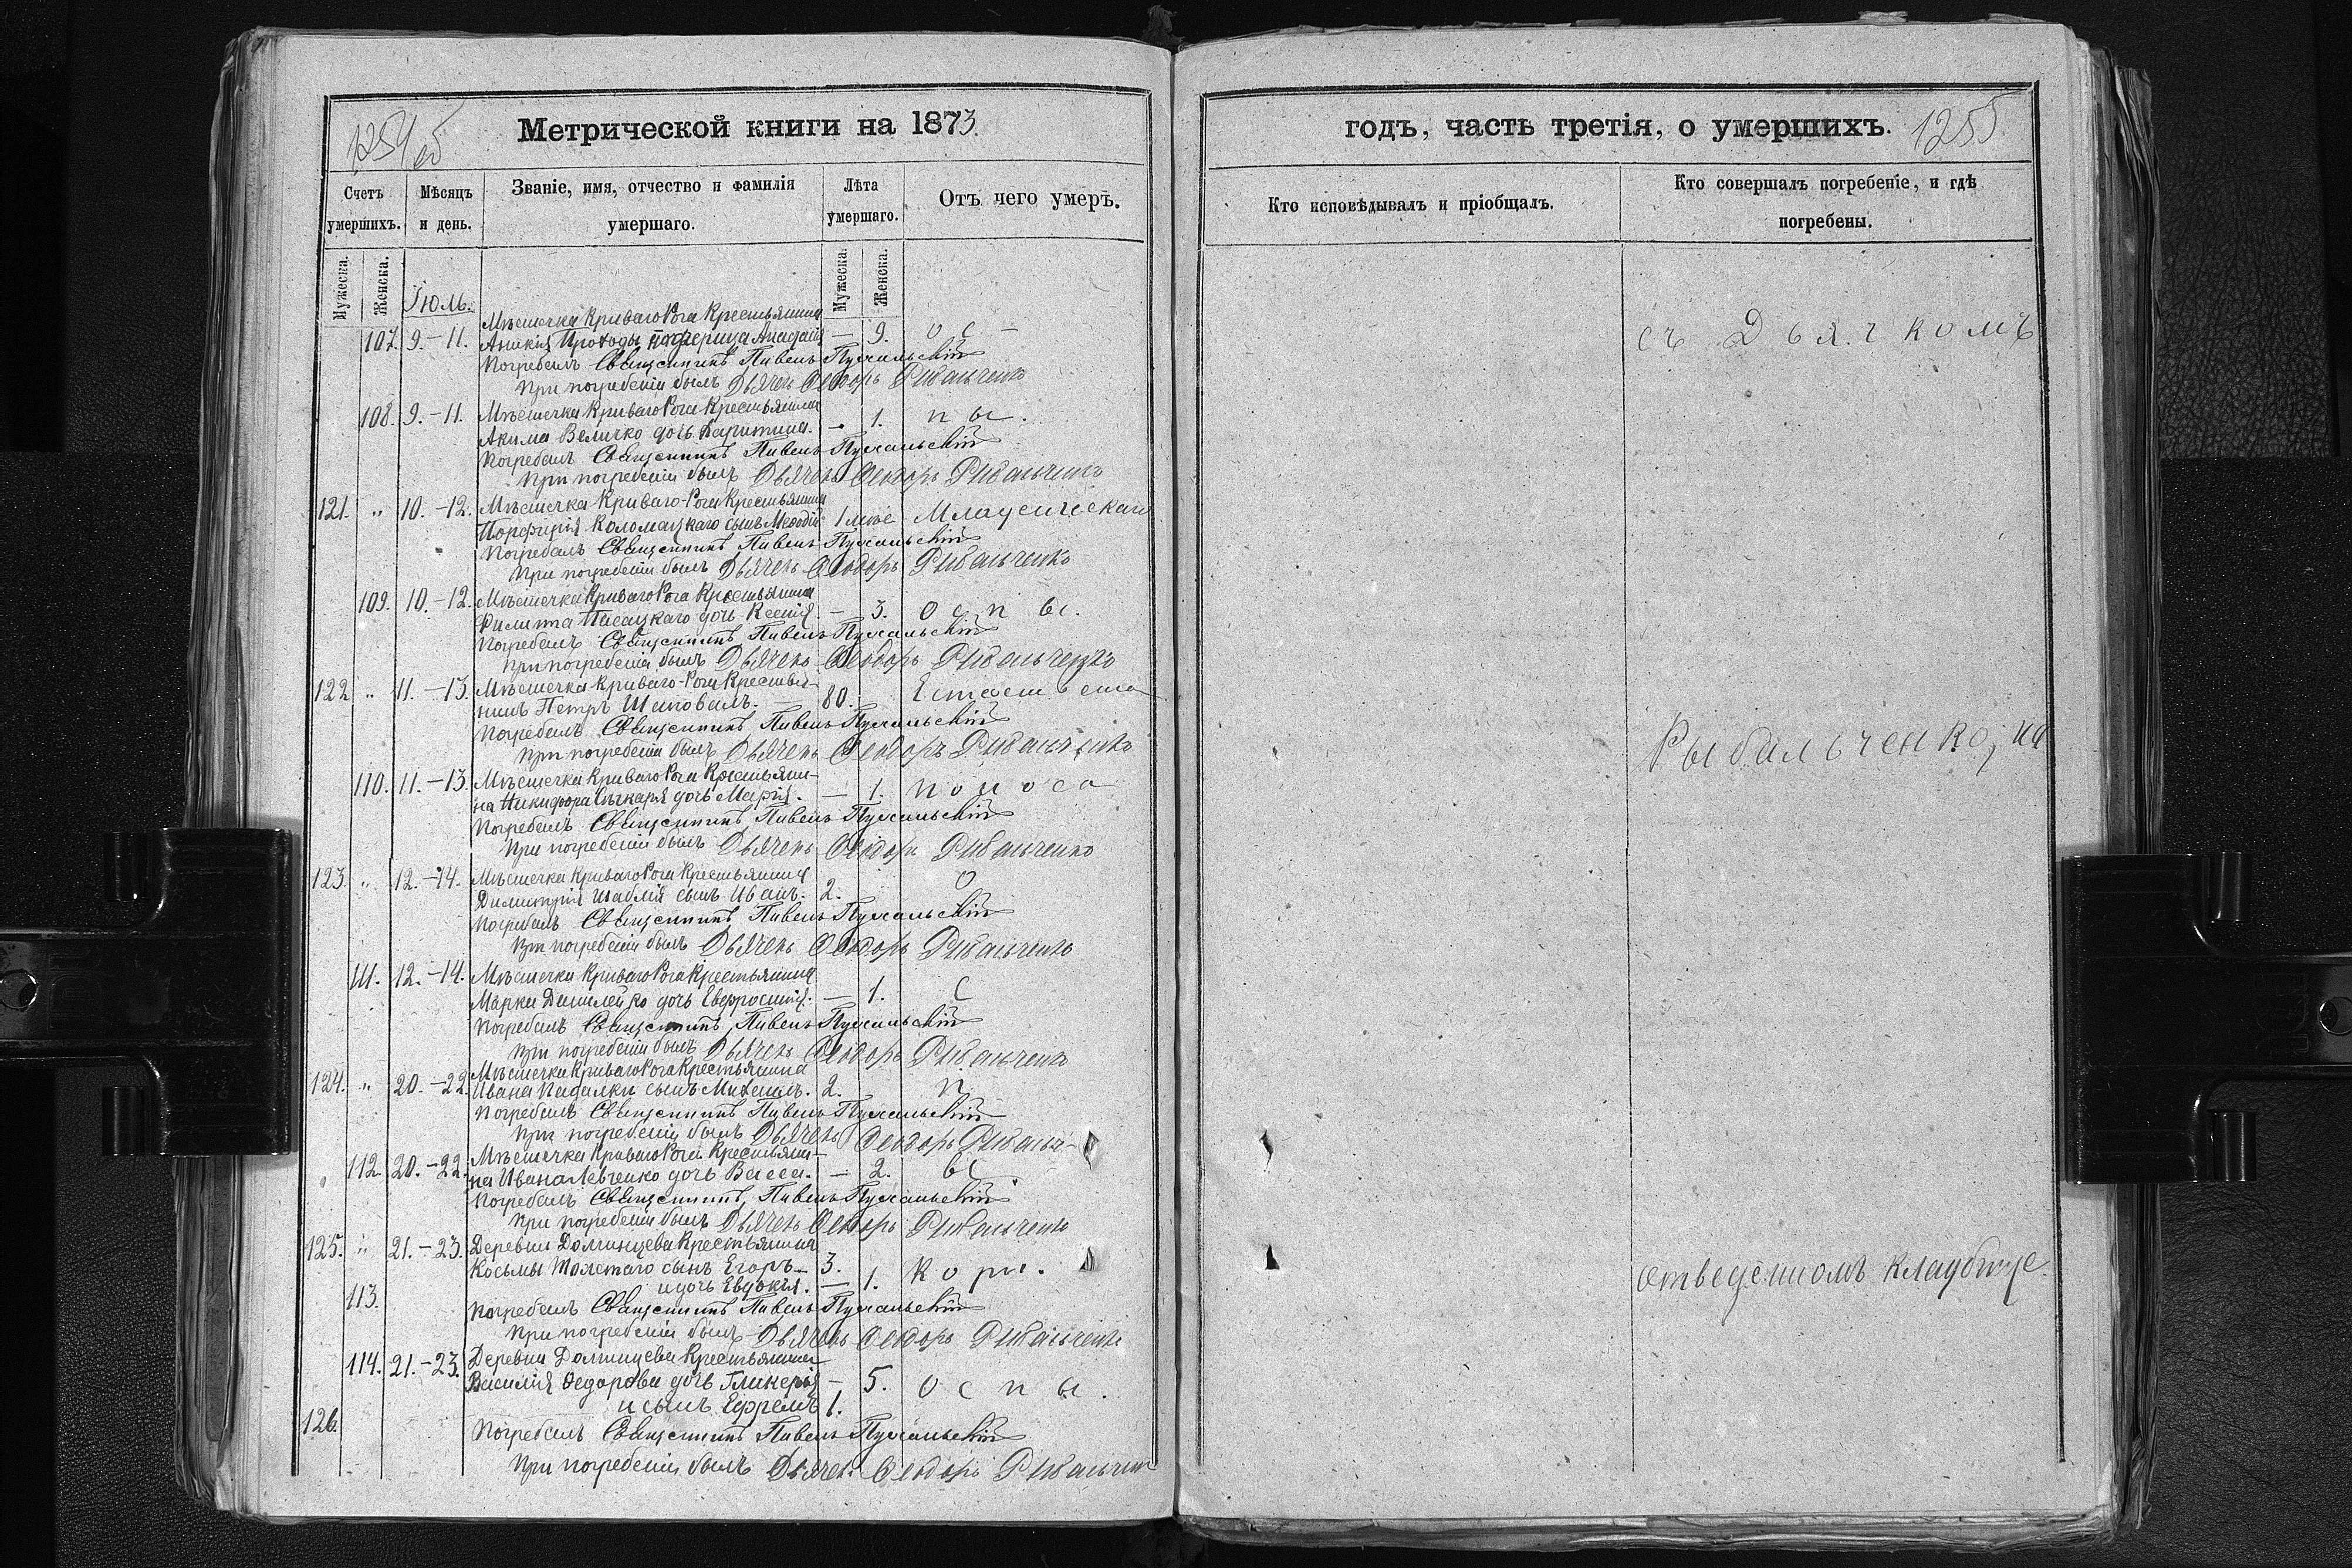 1254 об
Метрической книги на 1873.
Счетъ умершихъ.
Мѣсяцъ и день.
Званіе, имя, отчество и фамилія умершаго.
Лѣта умершаго.
Отъ чего умеръ.
Мужеска.
Женска.
Мужеска.
Женска.
Іюль.
Мѣстечка Криваго Рога Крестьянина
107. 9.-11. Аникія Проходы — 9. ос-
Погребалъ Священникъ Павелъ Пухальскій
При погребеніи былъ Дьячекъ Ѳеодоръ Рыбальченко
108. 9.-11. Мѣстечка Криваго Рога Крестьянина
Акима Величко дочь Харитина. - 1. пы.
Погребалъ Священникъ Павелъ Пухальскій
При погребеніи былъ Дьячекъ Ѳеодоръ Рыбальченко
121. " 10.-12. Мѣстечка Криваго-Рога Крестьянина
Порфирія Коломацкаго сынъ Меѳодій 1 мѣс Младенческой
Погребалъ Священникъ Павелъ Пухальскій
При погребеніи былъ Дьячекъ Ѳеодоръ Рыбальченко
109. 10.-12. Мѣстечка Криваго Рога Крестьянина
Филиппа дочь Ксенія. — 3. Оспы.
Погребалъ Священникъ Павелъ Пухальскій
При погребеніи былъ Дьячекъ Ѳеодоръ Рыбальченко
122 " 11.-13. Мѣстечка Криваго-Рога Крестья-
нинъ Петръ Шаповалъ. — 80.
Погребалъ Священникъ Павелъ Пухальскій
При погребеніи былъ Дьячекъ Ѳеодоръ Рыбальченко
110. 11.-13. Мѣстечка Криваго Рога Крестьяни-
на Никифора дочь Марія. — 1. поноса
Погребалъ Священникъ Павелъ Пухальскій
При погребеніи былъ Дьячекъ Ѳеодоръ Рыбальченко
123. " 12.-14. Мѣстечка Криваго Рога Крестьянина
Димитрія Шаблія сынъ Иванъ. 2. О
Погребалъ Священникъ Павелъ Пухальскій
При погребеніи былъ Дьячекъ Ѳеодоръ Рыбальченко
111. 12.-14. Мѣстечка Криваго Рога Крестьянина
Марка Данилейко дочь Евфросинія. — 1. С
Погребалъ Священникъ Павелъ Пухальскій
При погребеніи былъ Дьячекъ Ѳеодоръ Рыбальченко
Мѣстечка Криваго Рога Крестьянина
124. " 20.-22. Ивана Падалки сынъ Михаилъ. 2. п
Погребалъ Священникъ Павелъ Пухальскій
При погребеніи былъ Дьячекъ Ѳеодоръ Рыбальч-
112. 20.-22. Мѣстечка Криваго Рога Крестьяни-
на Ивана Левченко дочь Васса. — 2. ы
Погребалъ Священникъ Павелъ Пухальскій
При погребеніи былъ Дьячекъ Ѳеодоръ Рыбальченко
125. " 21.-23. Деревни Долгинцева Крестьянина
Косьмы Толстаго сынъ Егоръ 3. Кори.
113. и дочь Евдокія. — 1.
Погребалъ Священникъ Павелъ Пухальскій
При погребеніи былъ Дьячекъ Ѳеодоръ Рыбальченко
114. 21.-23. Деревни Долгинцева Крестьянина
Василія Ѳедорова дочь Гликерія — 5. оспы.
126. и сынъ Ефремъ 1.
Погребалъ Священникъ Павелъ Пухальскій
При погребеніи былъ Дьячекъ Ѳеодоръ
годъ, часть третія, о умершихъ.
1255
Кто исповѣдывалъ и пріобщалъ.
Кто совершалъ погребеніе, и гдѣ погребены.
съ Дьячкомъ
Рыбальченко, на
отведенномъ кладбище.